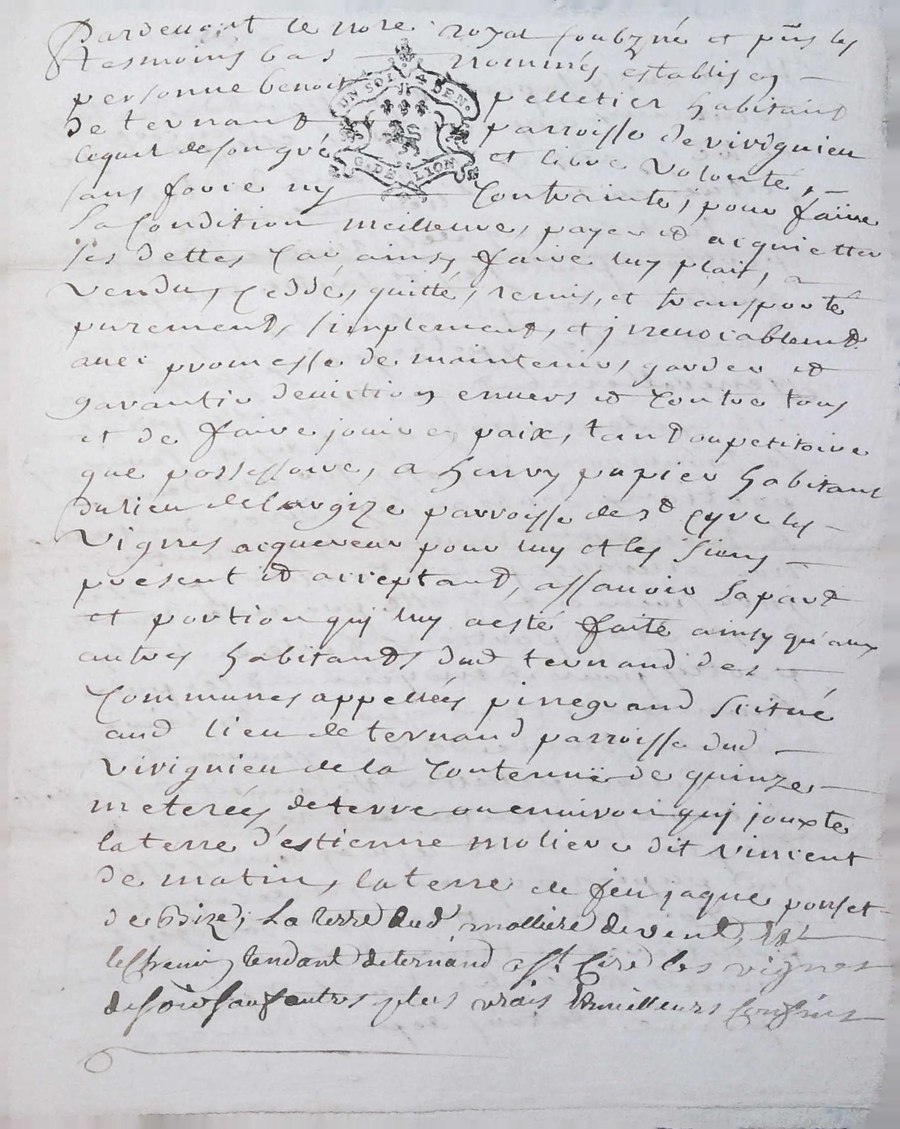 Pardevant le nore royal soubzné et pñs les
tesmoins bas nommés establis en
personne benoit pelletier habitant
de ternand parroisse de vivignieu
lequel de son gré et libre volonté,
sans force ny contrainte, pour faire
sa condition meilleure, payer et acquietter
ses dettes car ainsy faire luy plait, a
vendu, ceddé, quitté, remis, et transporté
purement, simplement, et jrrevocablemt
avec promesse de maintenir, garder et
garantir deviction envers et contre tous
et de faire jouir en paix, tand au petitoire
que possessoire, a henry papier habitant
du lieu de largize parroisse de st cyre les
vignes acquereur pour luy et les siens
present et acceptant, assavoir sa part
et portion quj luy a esté faite ainsy qu'aux
autres habitands dud ternand des
communes appellées pinegrand scitué
aud lieu de ternand parroisse dud
vivignieu de la contenuë de quinze
meterées de terre ou environ quj jouxte
la terre d'estienne moliere dit vincent
de matin, la terre de feu jaque ponset
de bize, la terre dud molliere de vent, et
le chemin tendant de ternand a st cire les vignes
de soir sauf autres plus vrais & meilleurs confins
UN SOL 4 DEN.
G. DE LION